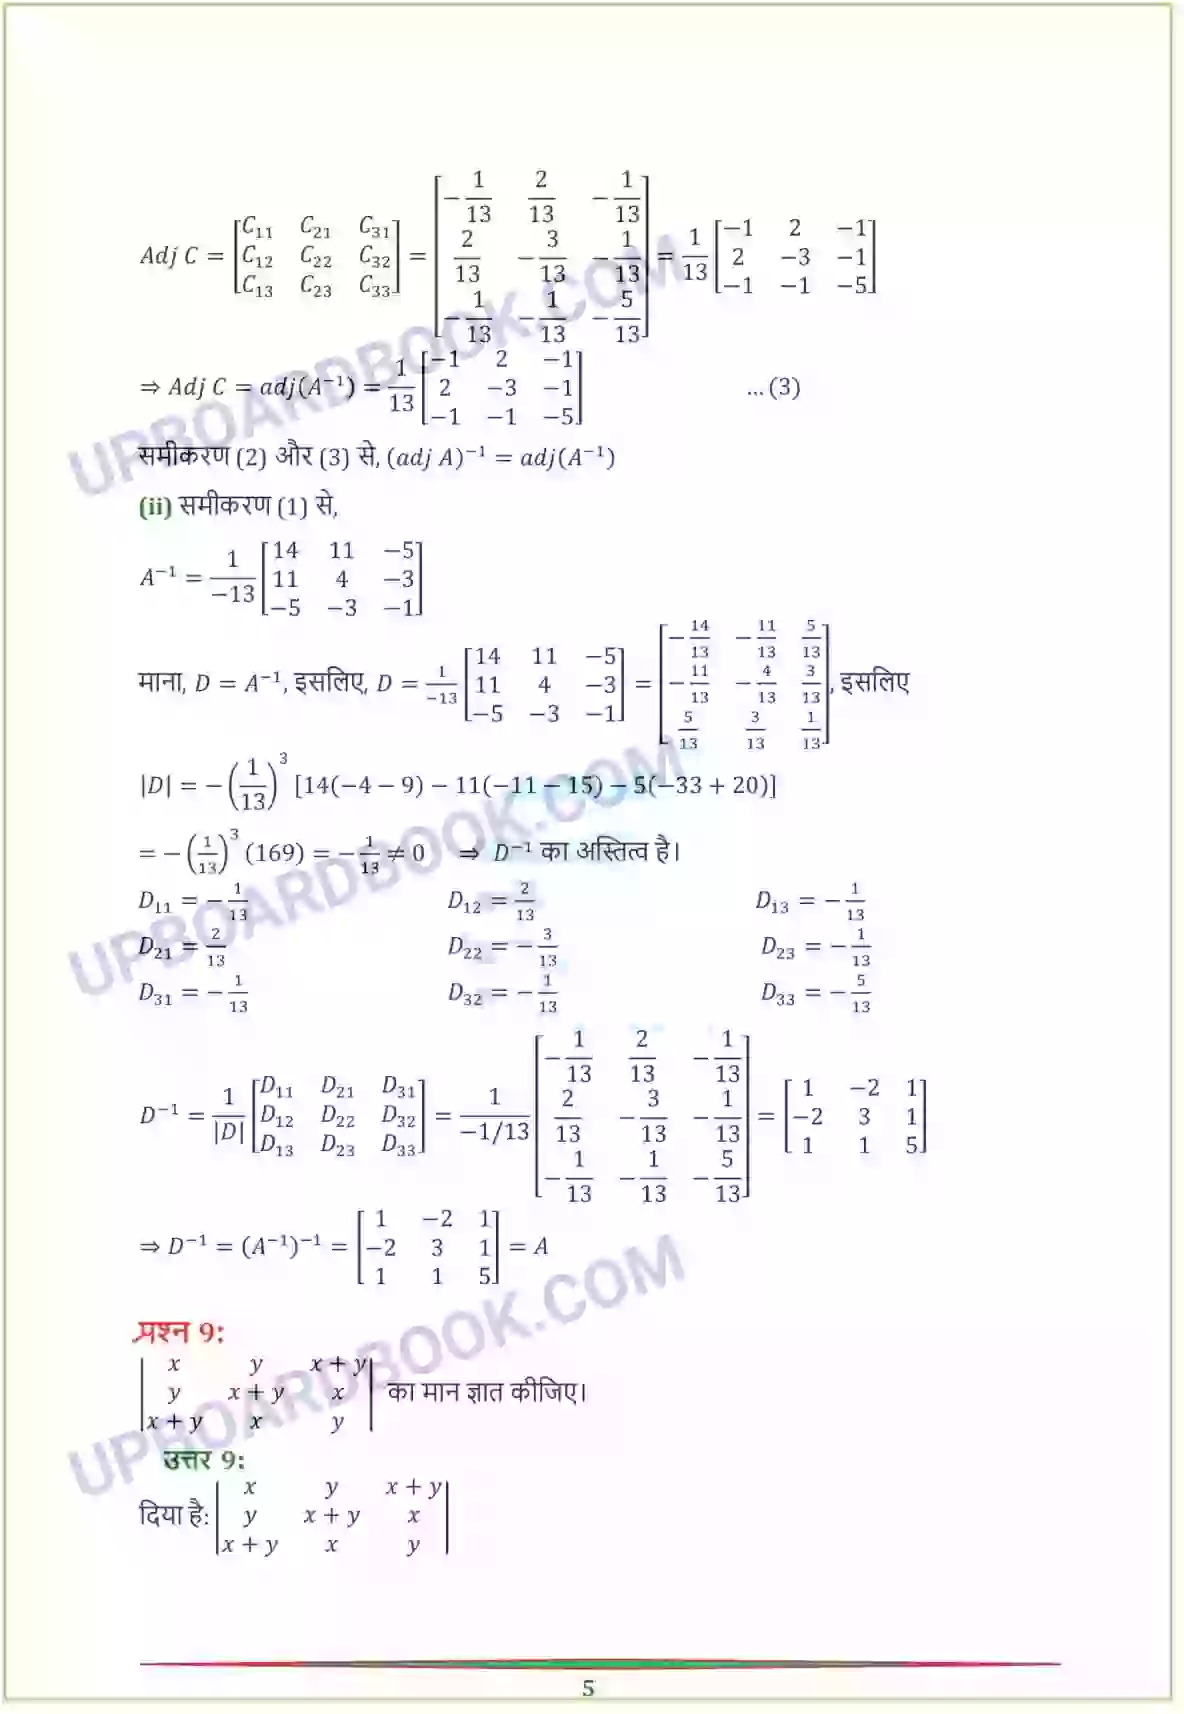 Adj C = [C₁₁ C₂₁ C₃₁; C₁₂ C₂₂ C₃₂; C₁₃ C₂₃ C₃₃] = [−1/13 2/13 −1/13; 2/13 −3/13 −1/13; −1/13 −1/13 −5/13] = 1/13 [−1 2 −1; 2 −3 −1; −1 −1 −5]
⇒ Adj C = adj(A⁻¹) = 1/13 [−1 2 −1; 2 −3 −1; −1 −1 −5] … (3)
समीकरण (2) और (3) से, (adj A)⁻¹ = adj(A⁻¹)
(ii) समीकरण (1) से,
A⁻¹ = 1/−13 [14 11 −5; 11 4 −3; −5 −3 −1]
माना, D = A⁻¹, इसलिए, D = 1/−13 [14 11 −5; 11 4 −3; −5 −3 −1] = [−14/13 −11/13 5/13; −11/13 −4/13 3/13; 5/13 3/13 1/13], इसलिए
|D| = −(1/13)³ [14(−4 − 9) − 11(−11 − 15) − 5(−33 + 20)]
= −(1/13)³ (169) = −1/13 ≠ 0 ⇒ D⁻¹ का अस्तित्व है।
D₁₁ = −1/13 D₁₂ = 2/13 D₁₃ = −1/13
D₂₁ = 2/13 D₂₂ = −3/13 D₂₃ = −1/13
D₃₁ = −1/13 D₃₂ = −1/13 D₃₃ = −5/13
D⁻¹ = 1/|D| [D₁₁ D₂₁ D₃₁; D₁₂ D₂₂ D₃₂; D₁₃ D₂₃ D₃₃] = 1/−1/13 [−1/13 2/13 −1/13; 2/13 −3/13 −1/13; −1/13 −1/13 −5/13] = [1 −2 1; −2 3 1; 1 1 5]
⇒ D⁻¹ = (A⁻¹)⁻¹ = [1 −2 1; −2 3 1; 1 1 5] = A
प्रश्न 9:
|x y x + y; y x + y x; x + y x y| का मान ज्ञात कीजिए।
उत्तर 9:
दिया है: |x y x + y; y x + y x; x + y x y|
5
UPBOARDBOOK.COM
UPBOARDBOOK.COM
UPBOARDBOOK.COM